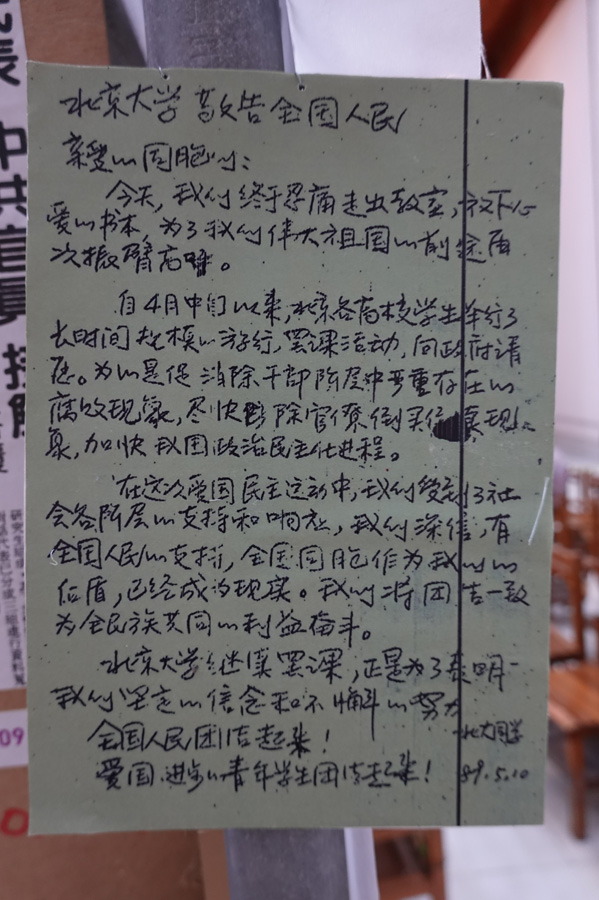 北京大学敬告全国人民
亲爱的同胞们：
今天，我们终于忍痛走出教室，放下心
爱的书本，为了我们伟大祖国的前途再
次振臂高呼。
自4月中旬以来，北京各高校学生举行了
长时间 规模的游行，罢课活动，向政府请
愿。为的是促 消除干部阶层中严重存在的
腐败现象，尽快 除官僚倒买倒卖现
象，加快我国政治民主化进程。
在这次爱国民主运动中，我们受到了社
会各阶层的支持和响应，我们深信，有
全国人民的支持，全国同胞作为我们的
后盾，已经成为现实。我们将团结一致
为全民族共同的利益奋斗。
北京大学继续罢课，正是为了表明
我们坚定的信念和不懈的努力
全国人民团结起来！
北大同学
爱国、进步的青年学生团结起来！
89.5.10
中共官員
09